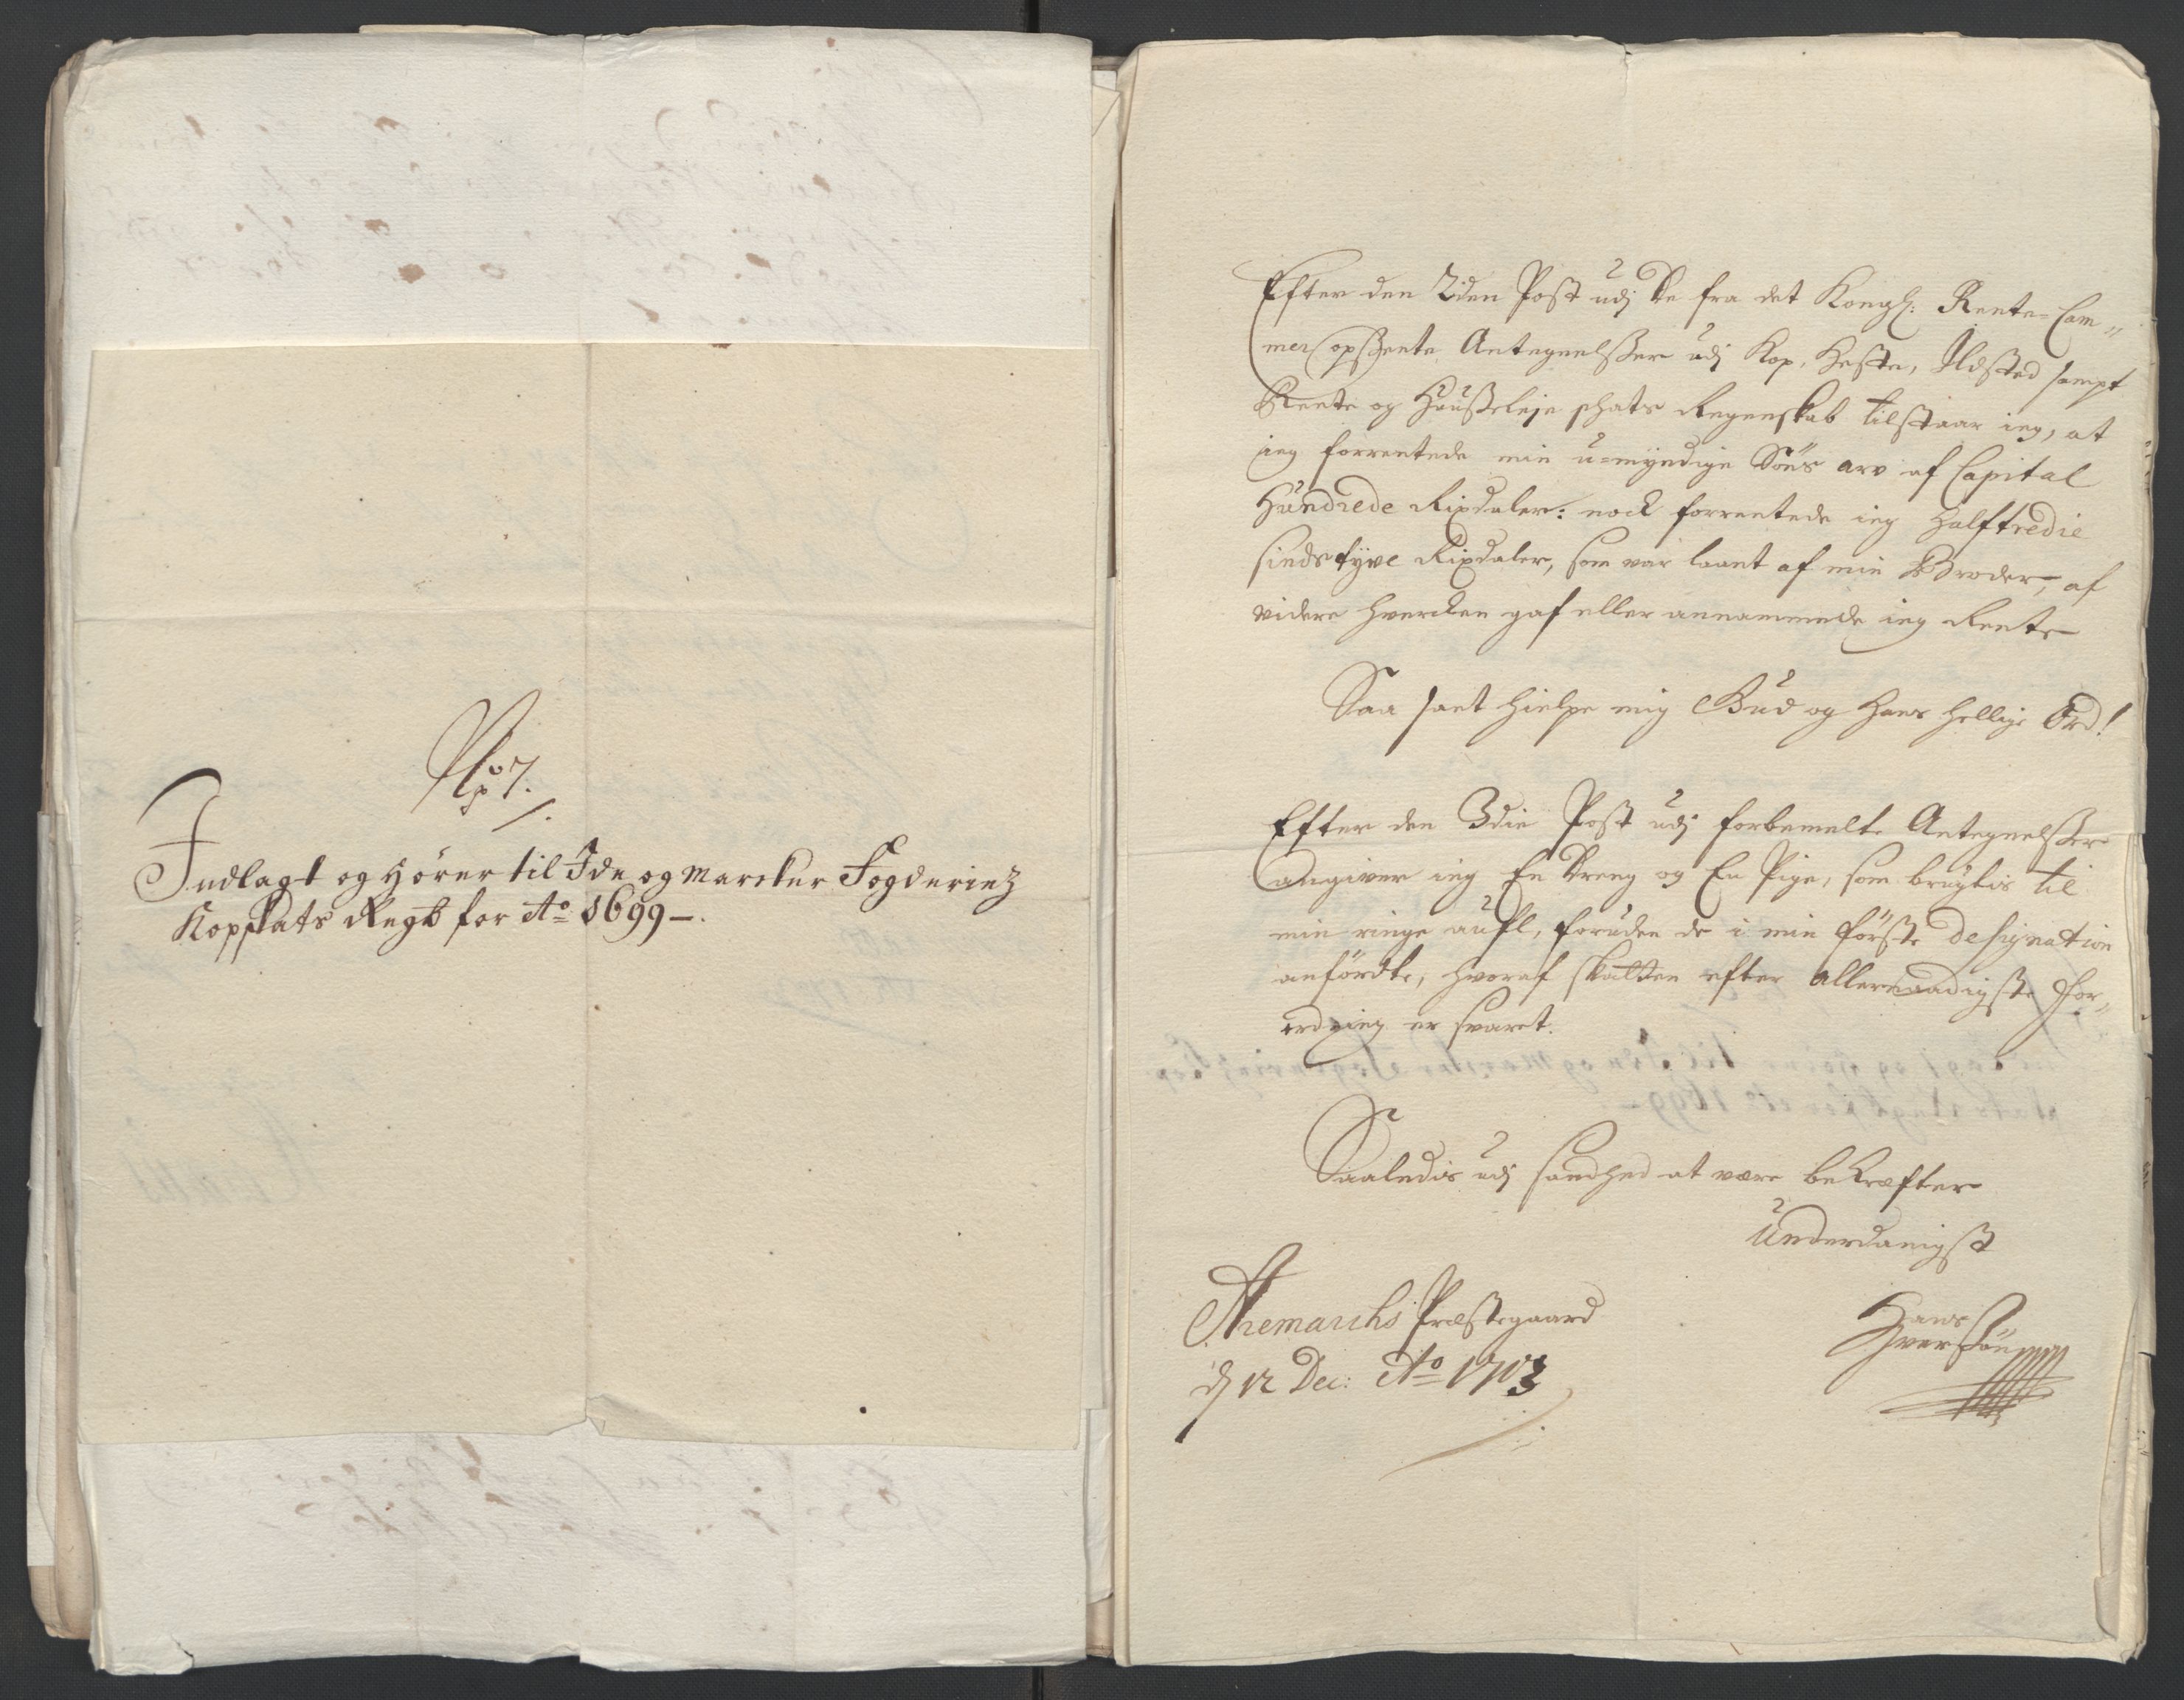 No 7.
Indlagt og hører til Ide og Marcker Fogderietz
Kopskats Regb for Ao 1699 -.
Efter den 2den Post udj de fra det Kongl: Rente-Cam-
mer opsente Antegnelsser udj Kop, Heste, Ildsted sampt
Rente og Haußleje schats Regenskab tilstaar ieg, at
ieg forrentede min u-myndige Söns arv af Capital
Hundrede Rixdaler: nock forrentede ieg Halftredie
sinds tyve Rixdaler, som var laant af min Broder, af
videre hvercken gaf eller annammede ieg Rente
Saa sant hielpe mig Gud og Hans hellige Ord!
Efter den 3die Post udj forbemelte Antegnelsser
angiver ieg En Dreng og En Pige, som brugtis til
min ringe aufl, foruden de i min förste designation
anfördte, hvoraf skatten efter allernaadigste For-
ordning er svaret.
Saaledis udj sandhed at være bekræfter
Underdanigst
Aremarchs Præstegaard
dj 12 Dec: Ao 1703
Hans
Iversön